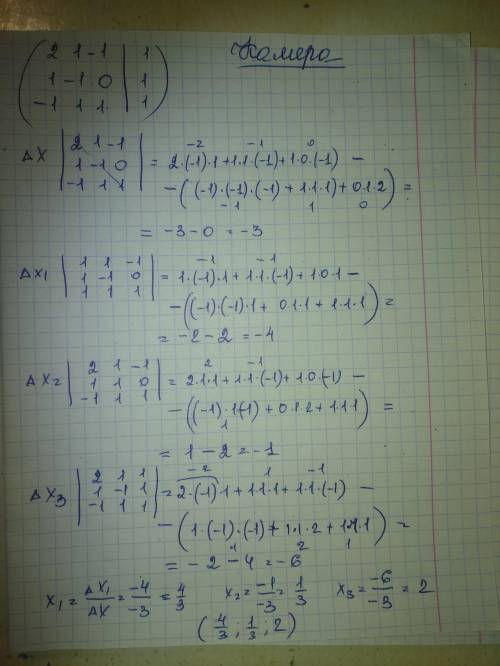 Камера
( 2 1 -1 | 1
1 -1 0 | 1
-1 1 1 | 1 )
ΔX | 2 1 -1
1 -1 0
-1 1 1 | = 2·(-1)·1+1·1·(-1)+1·0·(-1) −
-2 -1 0
−((-1)·(-1)·(-1) + 1·1·1) + 0·1·2) =
-1 1 0
= -3 - 0 = -3
ΔX1 | 1 1 -1
1 -1 0
1 1 1 | = 1·(-1)·1 + 1·1·(-1) + 1·0·1 −
-1 -1
−((-1)·(-1)·1 + 0·1·1 + 1·1·1) =
= -2 - 2 = -4
ΔX2 = | 2 1 -1
1 1 0
-1 1 1 | = 2·1·1 + 1·1·(-1) + 1·0·(-1) −
2 -1
−((-1)·1·(-1) + 0·1·2 + 1·1·1) =
1
= 1 − 2 = -1
ΔX3 | 2 1 1
1 -1 1
-1 1 1 | = 2·(-1)·1 + 1·1·1 + 1·1·(-1) −
-2 1 -1
−(1·(-1)·(-1) + 1·1·2 + 1·1·1) =
1 2 1
= -2 - 4 = -6
X1 = ΔX1/ΔX = -4/-3 = 4/3 X2 = -1/-3 = 1/3 X3 = -6/-3 = 2
(4/3, 1/3, 2)